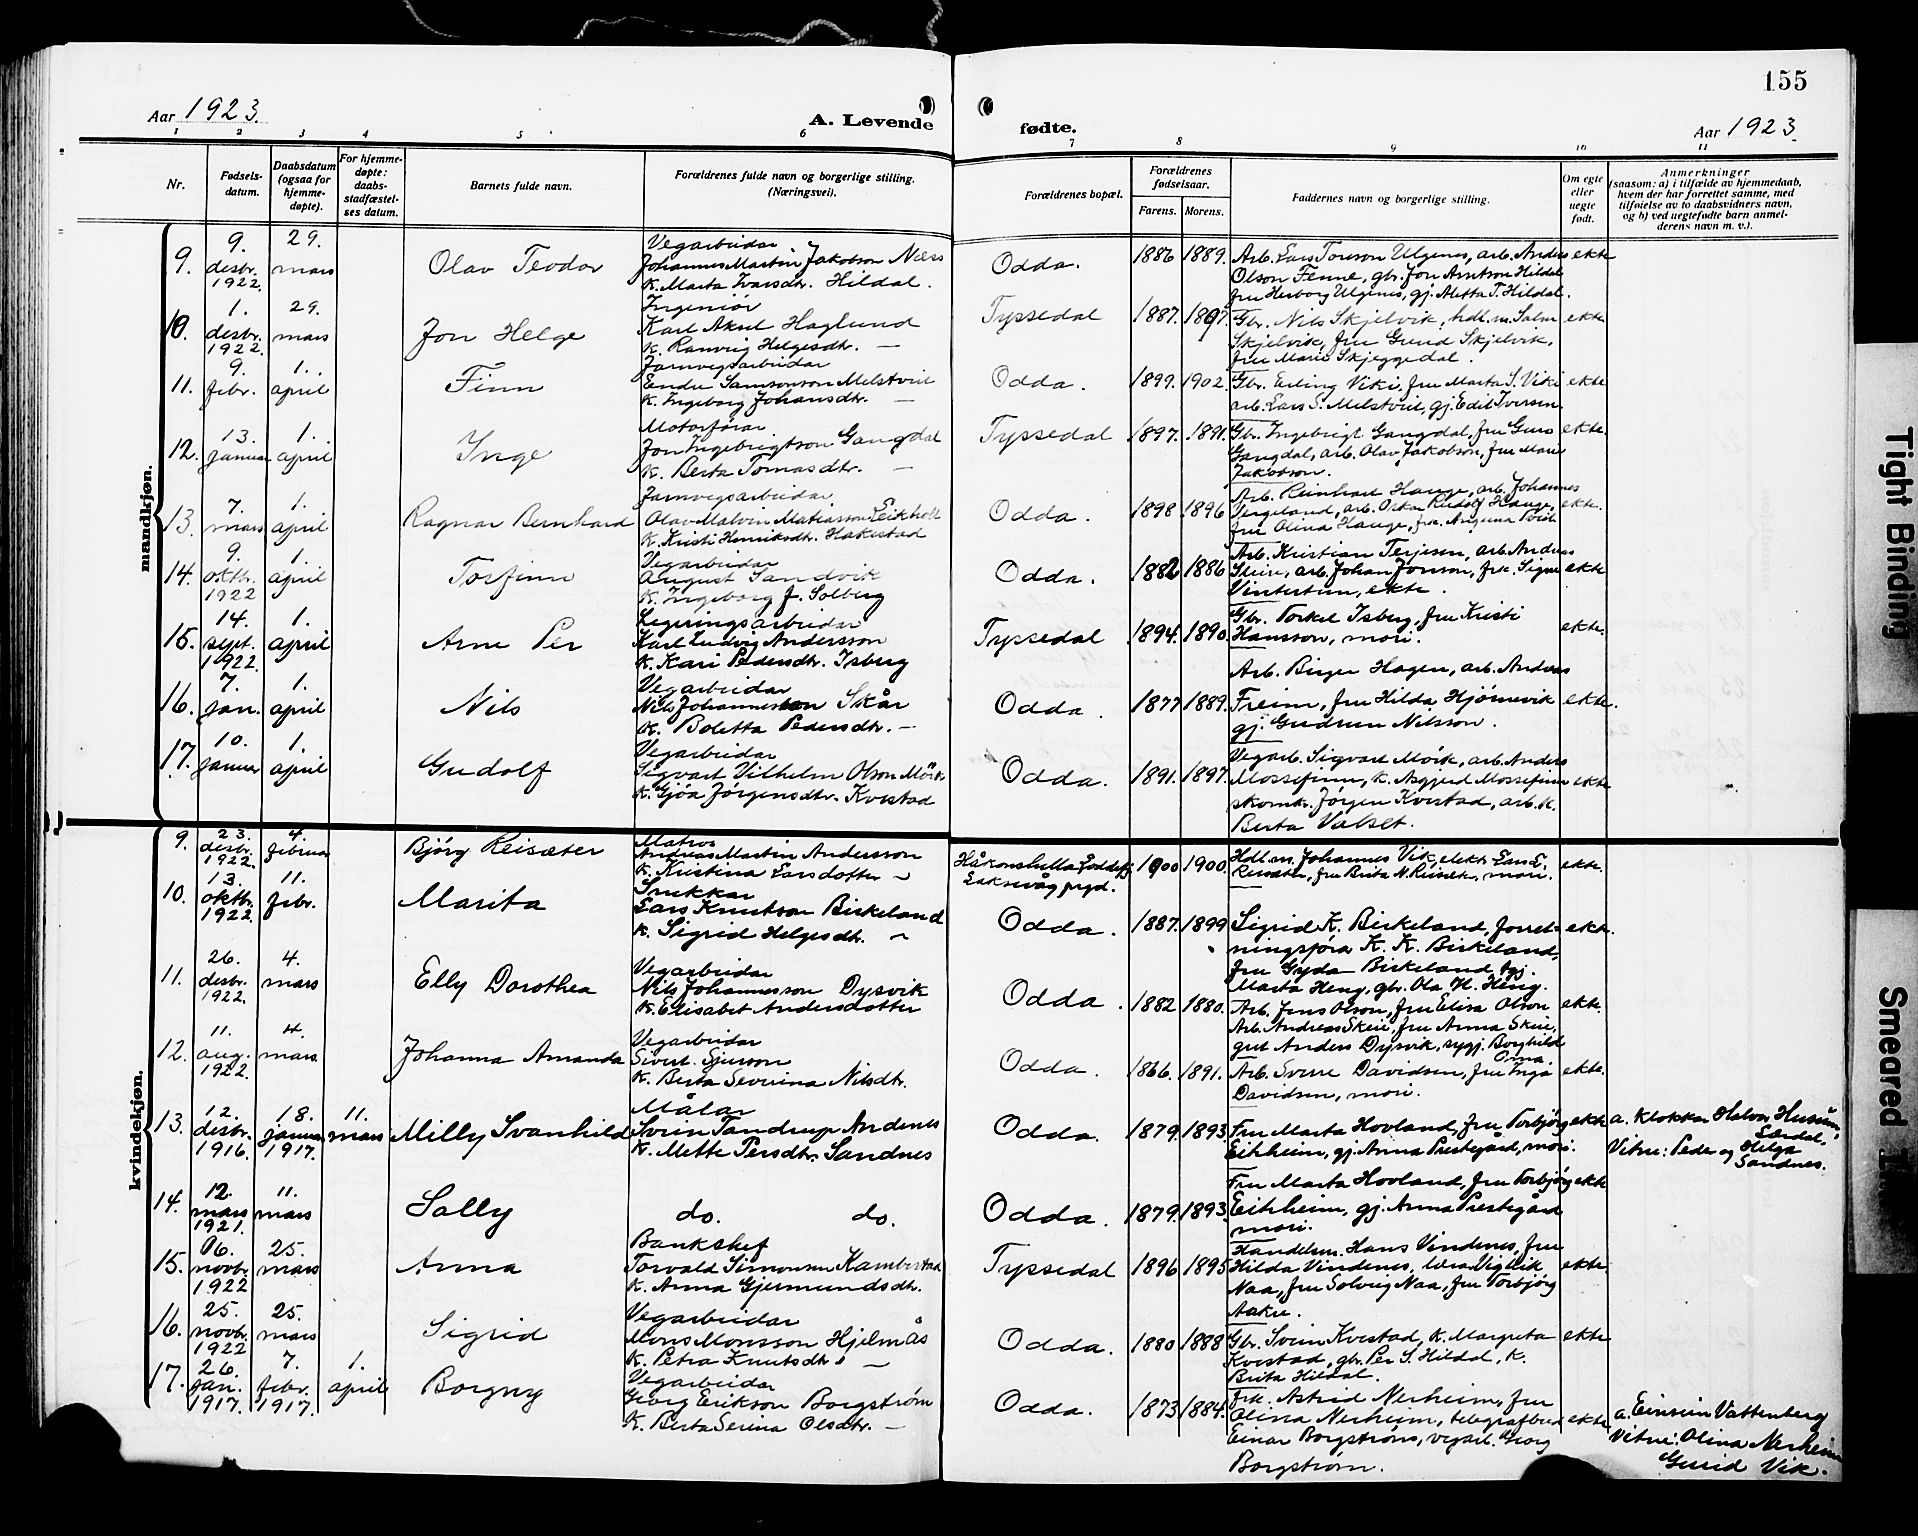 155
Aar 1923.
A. Levende
fødte.
Aar 1923
1 2 3 4 5 6 7 8 9 10 11
Nr.
Fødsels-
datum.
Daabsdatum
(ogsaa for
hjemme-
døpte).
For hjemme-
døpte:
daabs-
stadfæstel-
ses datum.
Barnets fulde navn.
Forældrenes fulde navn og borgerlige stilling.
(Næringsvei).
Forældrenes bopæl.
Forældrenes
fødselsaar.
Farens. Morens.
Faddernes navn og borgerlige stilling.
Om egte
eller
uegte
født.
Anmerkninger
(saasom: a) i tilfælde av hjemmedaab,
hvem der har forrettet samme, med
tilføielse av to daabsvidners navn,
og b) ved uegtefødte barn anmel-
derens navn m. v.).
mandkjøn.
9. 9. desbr. 1922. 29. mars Olav Teodor
Vegarbeidar
Johannes Martin Jakobson Næss
K. Marta Ivarsdtr. Hildal.
Odda. 1886 1889.
Arb. Lars Tonson Ulgenes, arb. Anders ekte
Olson Fenne, gbr. Jon Arntson Hildal
fru Herborg Ulgenes, gj. Aletta T. Hildal.
10. 1. desbr. 1922. 29. mars Jon Helge
Ingeniør
Karl Aksel Haglund
K. Ranveig Helgesdtr. —
Tyssedal 1887. 1897.
Gbr. Nils Skjelvik, hdl.m. Salm ekte
Skjelvik, fru Gurid Skjelvik,
fru Marie Skjeggedal.
11. 9. febr. 1. april Finn
Jarnvegsarbeidar
Endre Samsonson Melstveit
K. Ingeborg Johansdtr. —
Odda. 1899. 1902.
Gbr. Erling Viki, fru Marta S. Viki ekte
arb. Lars S. Melstveit, gj. Edit Iversen.
12. 13. januar 1. april Inge
Motorførar
Jon Ingebrigtson Gangdal
K. Berta Tomasdtr. —
Tyssedal 1897. 1891.
Gbr. Ingebrigt Gangdal, fru Guro ekte.
Gangdal, arb. Olav Jakobson, fru Marie
Jakobson.
13. 7. mars 1. april Ragnar Bernhard
Jarnvegsarbeidar
Olav Malvin Matiasson Leikholt
K. Kristi Henriksdtr. Hakestad
Odda. 1898 1896
Arb. Reinhart Hauge, arb. Johannes
Vergeland, arb. Oskar Rudolf Hauge, ekte.
fru Olina Hauge,
14. 9. oktbr. 1922 1. april Torfinn
Vegarbeidar
August Sandvik
K. Ingeborg J. Solberg
Odda. 1882 1886
Arb. Kristian Terjesen, arb. Anders
Skeie, arb. Johan Jonson, frk. Signe ekte
Vintertun, ekte.
15. 14. sept. 1922. 1. april Arne Per
Legeringsarbeidar
Karl Ludvig Andersson
K. Kari Pedersdtr. Isberg
Tyssedal 1894. 1890.
Gbr. Torkel Isberg, fru Kristi
Hansson, mori. ekte.
16. 7. jan. 1. april Nils
Vegarbeidar
Nils Johannesson Skår
K. Boletta Pedersdtr. —
Odda. 1877 1889.
Arb. Birger Hagen, arb. Anders
Freim, fru Hilda Hjørnevik ekte.
gj. Gudrun Nilsson.
17. 10. januar 1. april Gudolf
Vegarbeidar
Sigvart Vilhelm Olson Mørk
K. Gjøa Jørgensdtr. Kvestad
Odda. 1891. 1897.
Vegarb. Sigvart Mørk, arb. Anders
Mossefinn, K. Asgjerd Mossefinn ekte
skomk. Jørgen Kvestad, arb. K.
Berta Valset.
kvindekjøn.
9. 23. desbr. 1922. 4. februar Bjørg Reisæter
Matros
Andreas Martin Andersson
K. Kristina Larsdotter —
Håkonshella Loddefj.
Laksevåg pgd. 1900 1900.
Hdl.m. Johannes Vik, elektr. Lars L. ekte.
Reisæter, fru Brita N. Reisæt., mori.
10. 13. oktbr. 1922 11. febr. Marita
Snikkar
Lars Knutson Birkeland
K. Sigrid Helgesdtr. —
Odda. 1887. 1899
Sigrid K. Birkeland, forret- ekte.
ningsføra K. K. Birkeland,
fru Gyda Birkeland, tgj.
Marta Heng, gbr. Ola H. Heng.
11. 26. desbr. 1922. 4. mars Elly Dorothea
Vegarbeidar
Nils Johannesson Dysvik
K. Elisabet Andersdotter
Odda. 1882 1880.
Arb. Jens Olson, fru Elisa Olson ekte
Arb. Andreas Skeie, fru Anna Skeie,
gut Anders Dysvik, sygj. Borghild
Oma.
12. 11. aug. 1922. 4. mars Johanna Amanda
Vegarbeidar
Sivert Sjurson
K. Berta Severina Nilsdtr.
Odda. 1866. 1891.
Arb. Sverre Davidsen, fru Inga ekte.
Davidsen, mori.
13. 12. desbr. 1916. 18. januar 1917. 11. mars Milly Svanhild
Målar
Svein Tandrup Andenes
K. Mette Persdtr. Sandnes
Odda. 1879. 1893
Fru Marta Hovland, fru Torbjörg ekte
Eitrheim, gj. Anna Prestegård, mori.
a. Klokkar Halvar Husum,
Lærdal.
Vitne: Peder og Helga
Sandnes.
14. 12. mars 1921. 11. mars Solly
do. do.
Odda. 1879. 1893
Fru Marta Hovland, fru Torbjörg ekte
Eitrheim, gj. Anna Prestegård
mori.
15. 06. novbr. 1922 25. mars Anna
Bankshef
Torvald Simonsen Kambestad
K. Anna Gjermundsdtr.
Tyssedal 1896 1895
Handelsm. Hans Vindenes, fru
Hilda Vindenes, lærar Vigleik ekte.
Naa, fru Solveig Naa, fru Torbjörg
Aakre.
16. 25. novbr. 1922 25. mars Sigrid
Vegarbeidar
Mons Monsson Hjelmås
K. Petra Knutsdtr. —
Odda. 1880 1888
Gbr. Svein Kvestad, K. Margreta ekte
Kvestad, gbr. Per S. Hildal, K.
Brita Hildal.
17. 26. jan. 1917. 7. febr. 1917. 1. april Borgny
Vegarbeidar
Georg Erikson Borgstrøm
K. Berta Serina Olsdtr. —
Odda. 1873 1884.
Frk. Astrid Nerheim, fru
Olina Nerheim, telegrafbud ekte
Einar Borgstrøm, vegarb. Georg
Borgstrøm.
a. Einsrim Vattenberg
Vitne: Olina Nerheim
Gurid Vik.
Tight Binding
Smeared